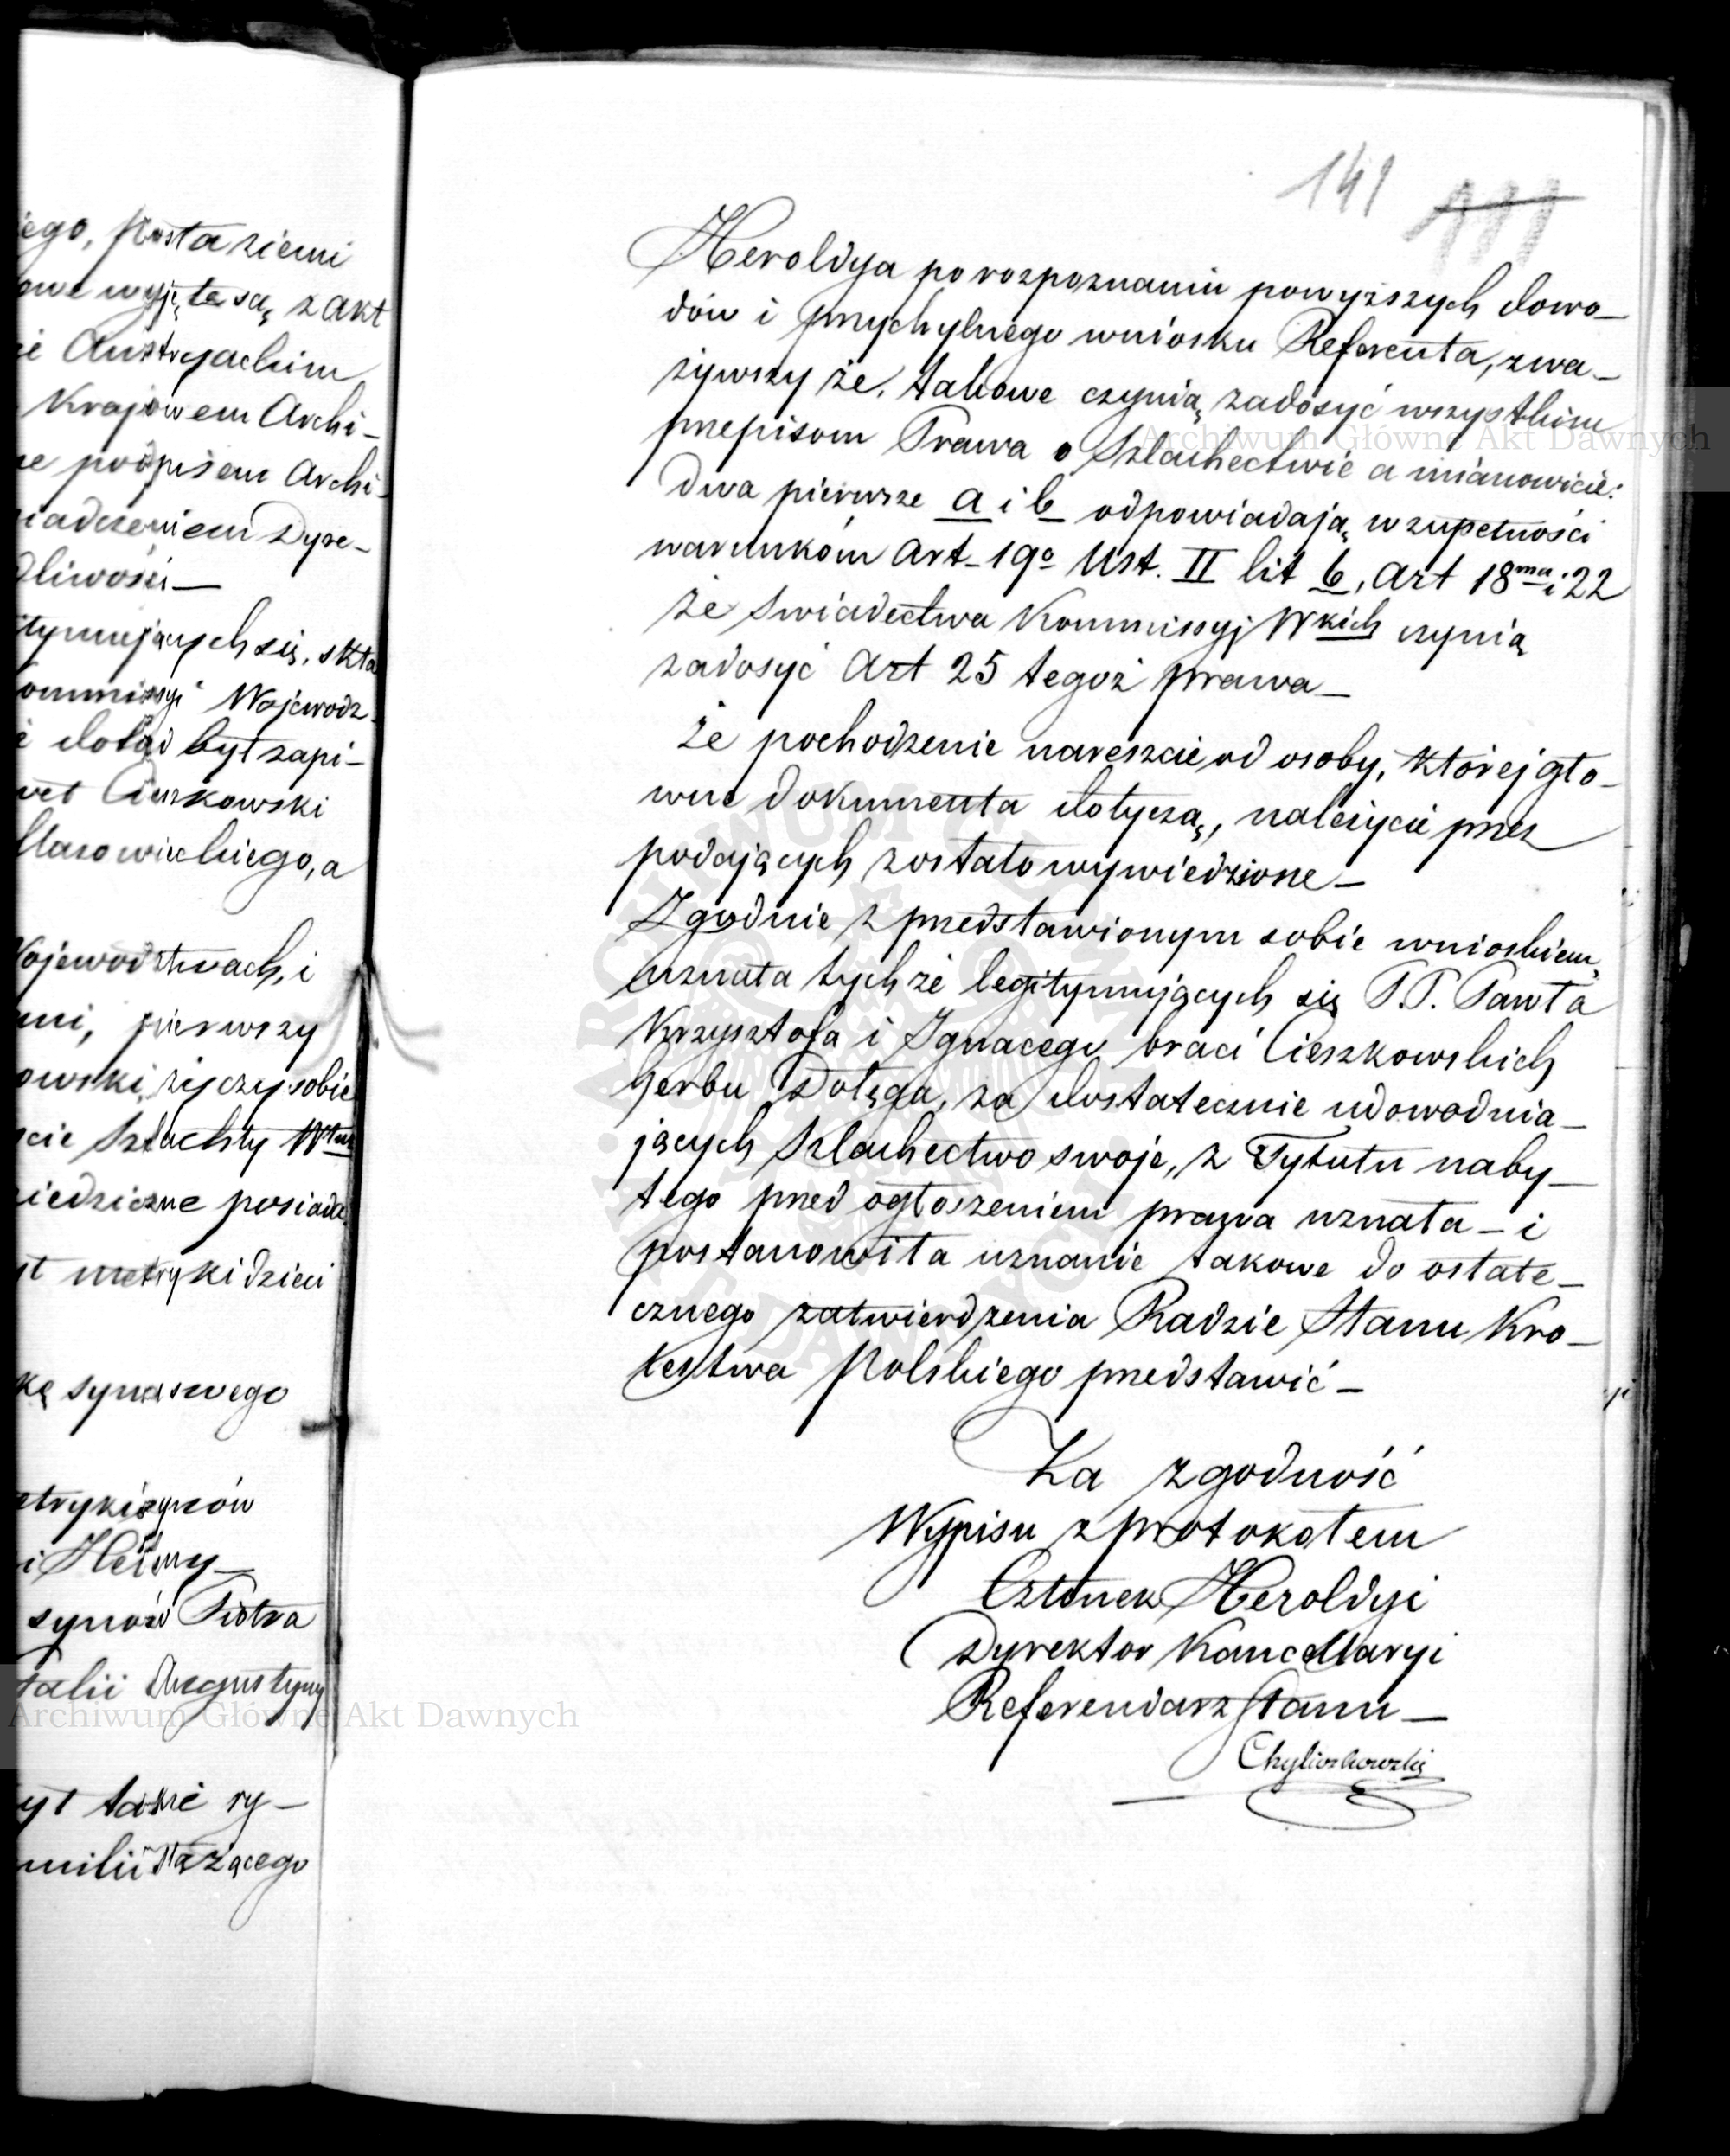 ego, Posta ziemi
owe wyjęte są, z akt
ie Austryackim
Krajowem Archi-
ne podpisem Archi-
iadczeniem Dyre-
dliwości—
itymujących się, skła
ommissyi Wojewodz-
był zapi-
Cieszkowski
Mazowieckiego, a
Wojewodztwach, i
mi, pierwszy
owski, życzy sobie
cie Szlachty Wtwa
iedziczne posiada
metryki dzieci
kę syna swego
etryki synów
i Heleny—
synów Piotra
talii Augustyny
yt także ry-
milii Stażącego
141 111
Heroldya po rozpoznaniu powyższych dowo-
dów i przychylnego wniosku Referenta, zwa-
żywszy że, takowe czynią zadosyć wszystkim
przepisom Prawa o Szlachectwie a mianowicie:
Dwa pierwsze a i b odpowiadają w zupełności
warunkom Art. 19o Ust. II lit b, Art 18ma i 22
że Swiadectwa Kommissyj Wkich czynią
zadosyć Art 25 tegoż prawa—
że pochodzenie nareszcie od osoby, której głó-
wne dokumenta dotyczą, należycie przez
podających zostało wywiedzione—
Zgodnie z przedstawionym sobie wnioskiem,
uznała tychże legitymujących się P.P. Pawła
Krzysztofa i Ignacego braci Cieszkowskich
herbu Dołęga, za dostatecznie udowodnia-
jących Szlachectwo swoje, z Tytułu naby-
tego przed ogłoszeniem prawa uznała— i
postanowiła uznanie takowe do ostate-
cznego zatwierdzenia Radzie Stanu Kró-
lestwa Polskiego przedstawić—
Za zgodność
Wypisu z protokołem
Członek Heroldyi
Dyrektor Kancellaryi
Referendarz Stanu—
Chyliczkowski
Archiwum Główne Akt Dawnych
Archiwum Główne Akt Dawnych